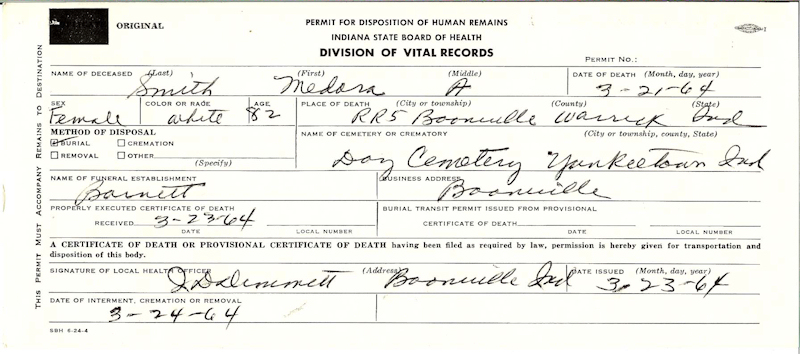 ORIGINAL
PERMIT FOR DISPOSITION OF HUMAN REMAINS
INDIANA STATE BOARD OF HEALTH
DIVISION OF VITAL RECORDS
PERMIT NO.:
THIS PERMIT MUST ACCOMPANY REMAINS TO DESTINATION
NAME OF DECEASED (Last) (First) (Middle) DATE OF DEATH (Month, day, year)
Smith Medora A 3-21-64
SEX COLOR OR RACE AGE PLACE OF DEATH (City or township) (County) (State)
Female White 82 RR5 Boonville Warrick Ind
METHOD OF DISPOSAL NAME OF CEMETERY OR CREMATORY (City or township, county, State)
BURIAL CREMATION
REMOVAL OTHER (Specify)
Day Cemetery Yankeetown Ind
NAME OF FUNERAL ESTABLISHMENT BUSINESS ADDRESS
Barnett Boonville
PROPERLY EXECUTED CERTIFICATE OF DEATH BURIAL TRANSIT PERMIT ISSUED FROM PROVISIONAL
RECEIVED 3-23-64 CERTIFICATE OF DEATH
DATE LOCAL NUMBER DATE LOCAL NUMBER
A CERTIFICATE OF DEATH OR PROVISIONAL CERTIFICATE OF DEATH having been filed as required by law, permission is hereby given for transportation and
disposition of this body.
SIGNATURE OF LOCAL HEALTH OFFICER (Address) DATE ISSUED (Month, day, year)
Boonville Ind 3-23-64
DATE OF INTERMENT, CREMATION OR REMOVAL
3-24-64
SBH 6-24-4